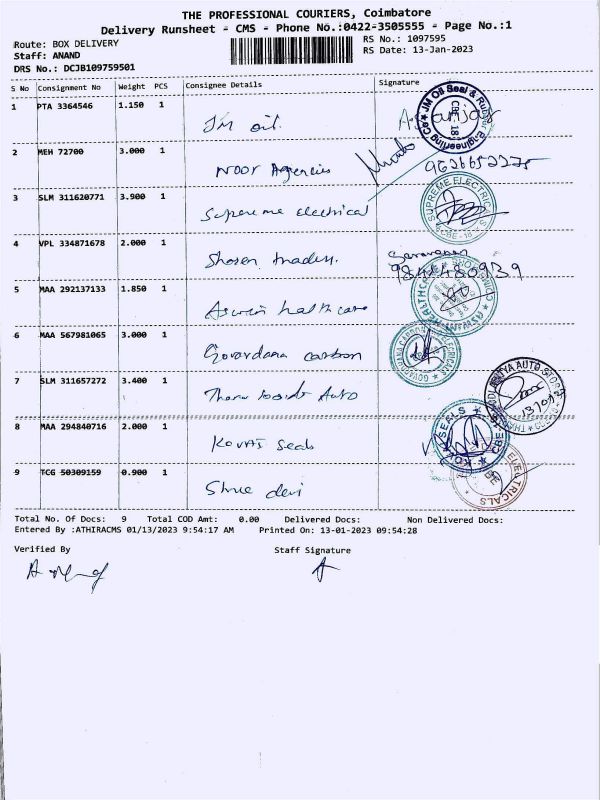 THE PROFESSIONAL COURIERS, Coimbatore
Delivery Runsheet - CMS - Phone No.:0422-3505555 - Page No.:1
Route: BOX DELIVERY
RS No.: 1097595
Staff: ANAND
RS Date: 13-Jan-2023
DRS No.: DCJB109759501
S No Consignment No Weight PCS Consignee Details Signature
1 PTA 3364546 1.150 1 JM oil.
JM Oil Seal & Rubber Engineering Co CBE 18
2 MEH 72700 3.000 1 Noor Agencies
9626652275
3 SLM 311620771 3.900 1 Supreme electrical
SUPREME ELECTRICALS CBE-18
4 VPL 334871678 2.000 1 traders.
Saravanan
5 MAA 292137133 1.850 1 Aswin halthcare
6 MAA 567981065 3.000 1 Govardana carbon
GOVARDHANA CARBON ELECTRICALS
7 SLM 311657272 3.400 1 Auto
AUTO STORE
8 MAA 294840716 2.000 1 Kovai Seals
KOVAI SEALS CBE
9 TCG 50309159 0.900 1 Shree devi
ELECTRICALS
Total No. Of Docs: 9 Total COD Amt: 0.00 Delivered Docs: Non Delivered Docs:
Entered By :ATHIRACMS 01/13/2023 9:54:17 AM Printed On: 13-01-2023 09:54:28
Verified By Staff Signature